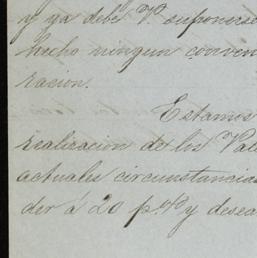 y ya debe V. suponerse
hecho ningun conven
racion.
Estamos
realizacion de los Vale
actuales circunstancias
der á 20 p.% y desea